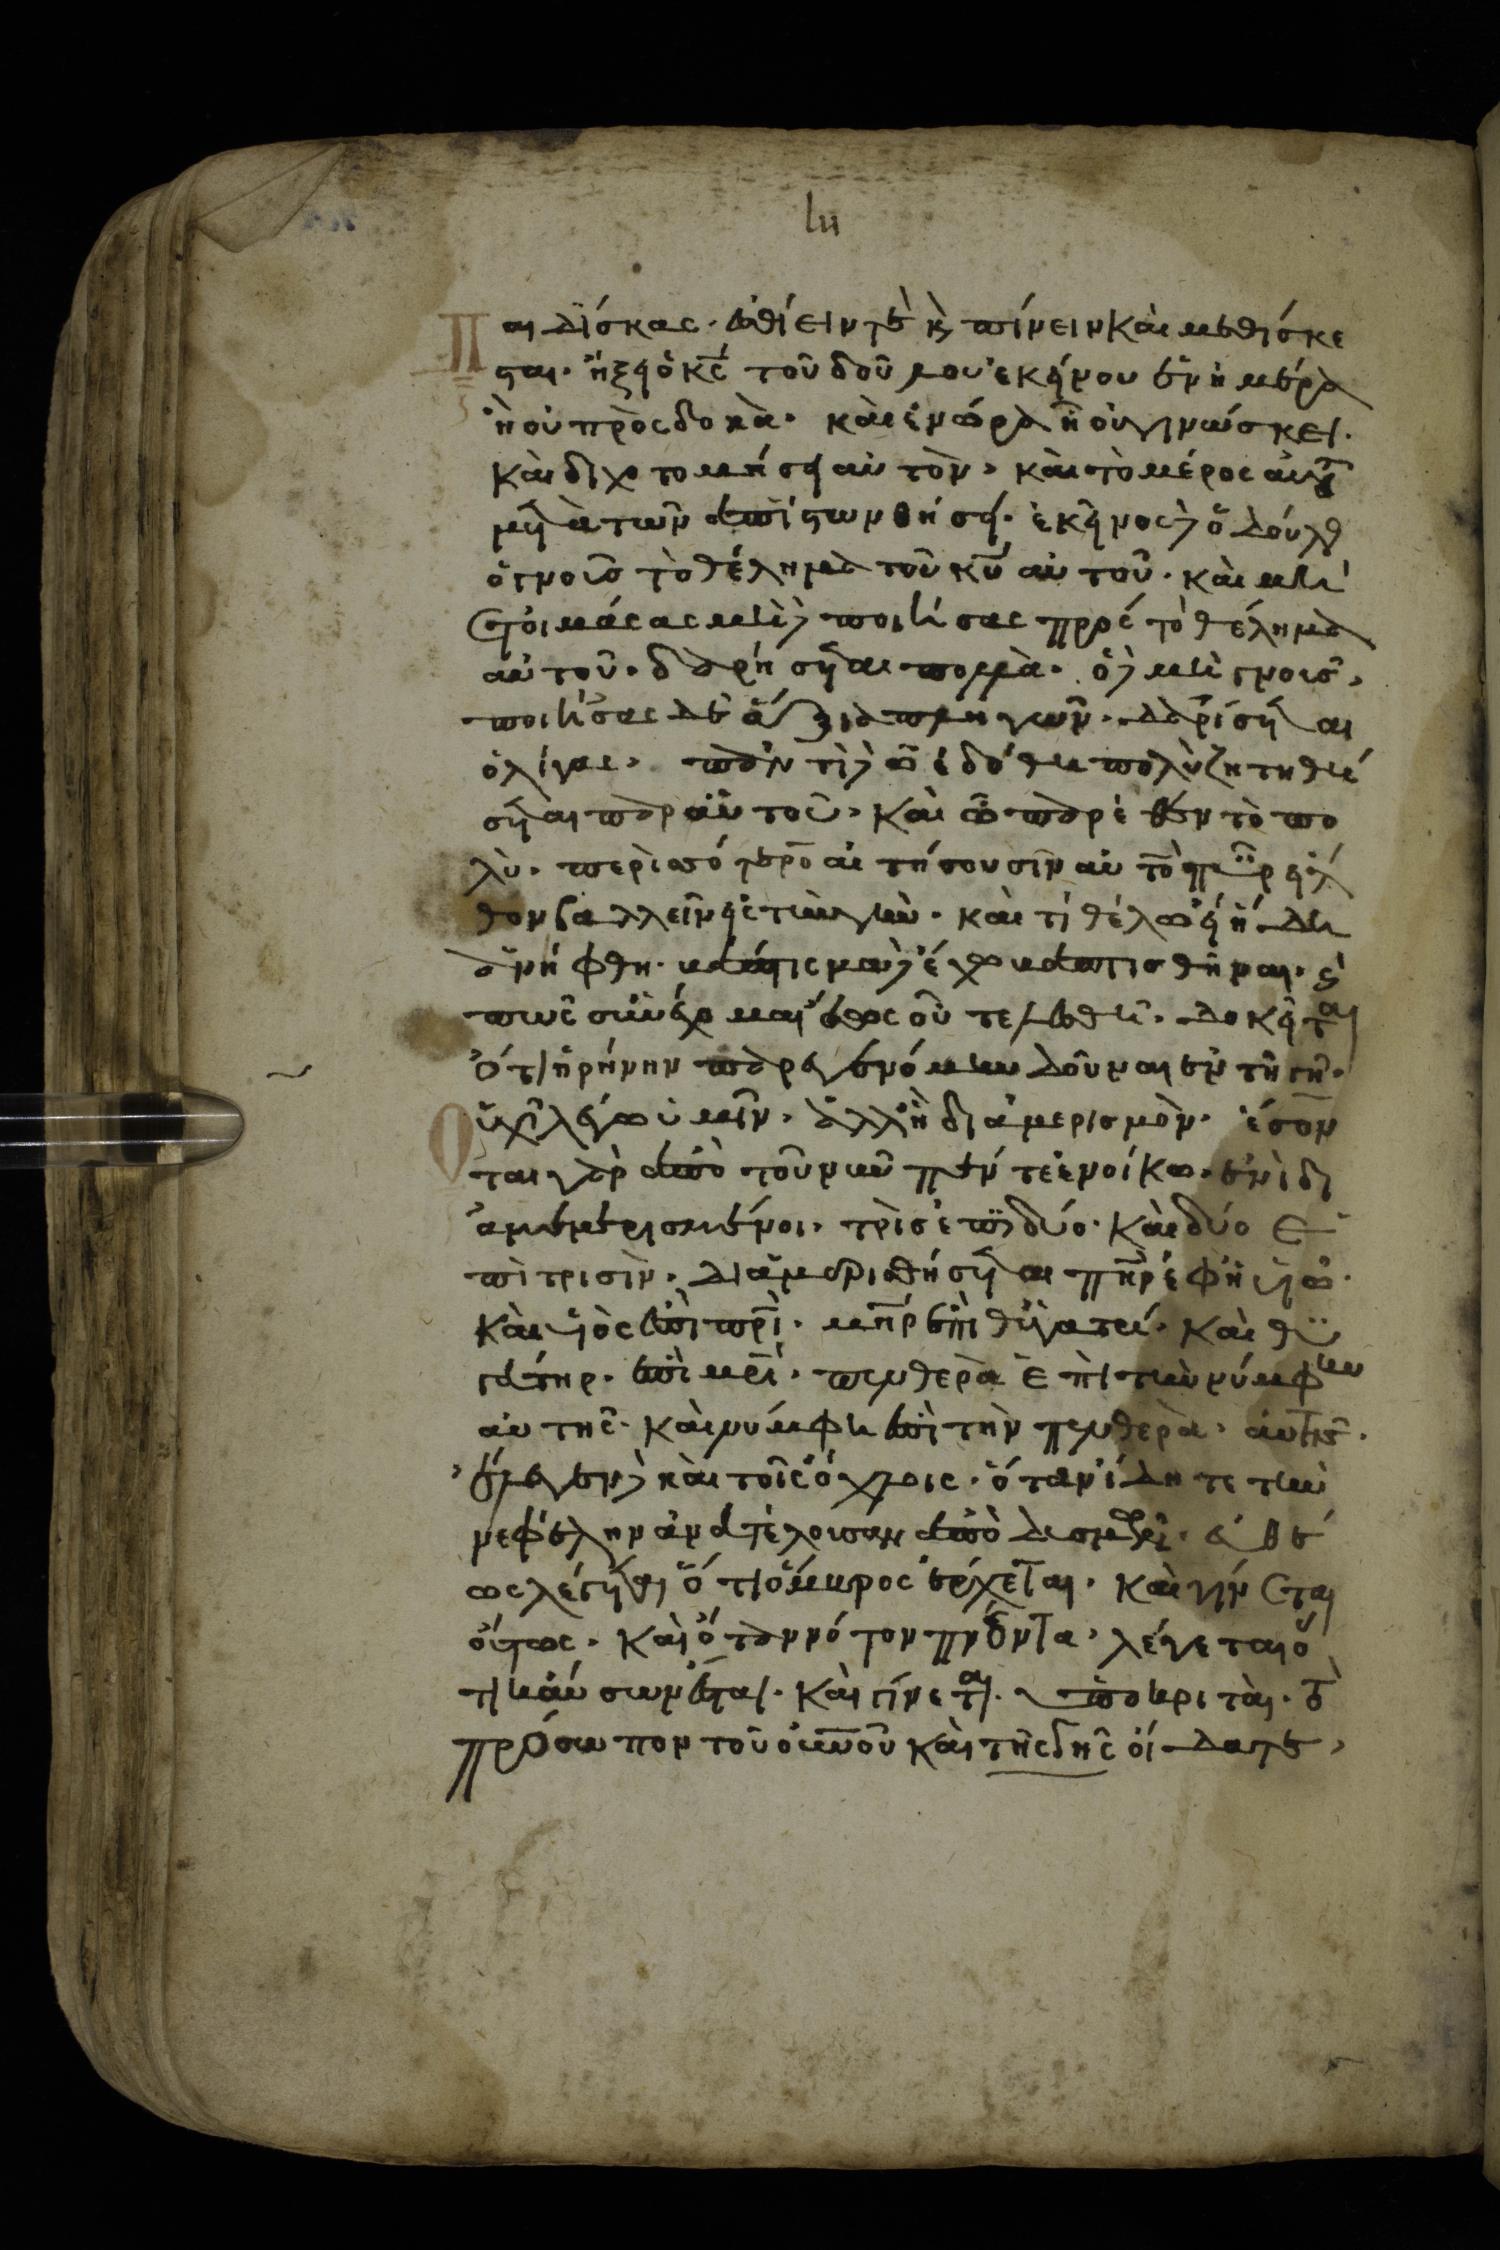 lii
Παιδίσκας· ἐσθίειν τὲ κ(αὶ) πίνειν καὶ μεθύσκε
σται· ἥξει ὁ κς τοῦ δούλου ἐκείνου ἐν ἡμέρα
ἣ οὐ προσδοκὰ· καὶ ἐν ώρα ἣ οὐ γινώσκει·
καὶ διχοτομήσει αὐτὸν· καὶ τὸ μέρος αὐτοῦ
μετὰ τῶν ἀπίστων θήσει· ἐκεῖνος δὲ ὁ δοῦλος
ὁ γνοὺς τὸ θέλημα τοῦ κυ αὐτοῦ· καὶ μὴ
ἑτοιμάσας μὴ δὲ ποιήσας πρὸς τὸ θέλημα
αὐτοῦ· δαρήσεται πολλὰ· ὁ δὲ μὴ γνοὺς,
ποιήσας δὲ ἄξια πληγῶν· δαρίσεται
ὀλίγας· παντὶ δὲ ὧ ἐδόθη πολὺ ζητηθή
σεται παρ αὐτοῦ· καὶ ὧ παρέθεντο πο
λὺ· περισσότερον αἰτήσουσιν αὐτὸν πῦρ ἦλ
θον βαλλεῖν εἰς τὴν γῆν· καὶ τί θέλω εἰ ἤδη
ἀνήφθη· βάπτισμα δὲ έχω βαπτισθῆναι· κ(αὶ)
πῶς συνέχομαι ἕως οὗ τελεσθῆ· δοκεῖται
ὅτι ἡρήνην παρεγενόμην δοῦναι ἐν τῆ γῆ·
Οὐχὶ λέγω ὑμῖν· ἀλλ ἢ διαμερισμὸν· ἔσον
ται γὰρ ἀπὸ τοῦ νῦν πέντε ἐν οίκω ἑνὶ δι
αμεμερισμένοι· τρὶς ἐπὶ δύο· καὶ δύο ἐ
πὶ τρισὶν· διαμερισθήσεται πηρ ἐφ ὑιῶ·
καὶ υἱὸς ἐπὶ πρὶ· μηρ ἐπὶ θυγατρί· καὶ θυ
γάτηρ· ἐπὶ μρὶ· πενθερὰ ἐπὶ τὴν νύμφην
αὐτῆς· καὶ νύμφη ἐπὶ τὴν πενθερὰ· αὐτῆς·
ἔλεγεν δὲ καὶ τοῖς όχλοις· ὅταν ίδητε τὴν
νεφέλην ἀνατέλουσαν ἀπὸ δυσμῶν· εὐθέ
ως λέγεται ὅτι όμβρος ἔρχεται· καὶ γίνεται
οὕτως· καὶ ὅταν νότον πνέοντα· λέγεται ὅ
τι καύσων έσται· καὶ γίνεται· ὑποκριταὶ· τὸ
πρόσωπον τοῦ οὐνοῦ καὶ τῆς γῆς οίδατε,